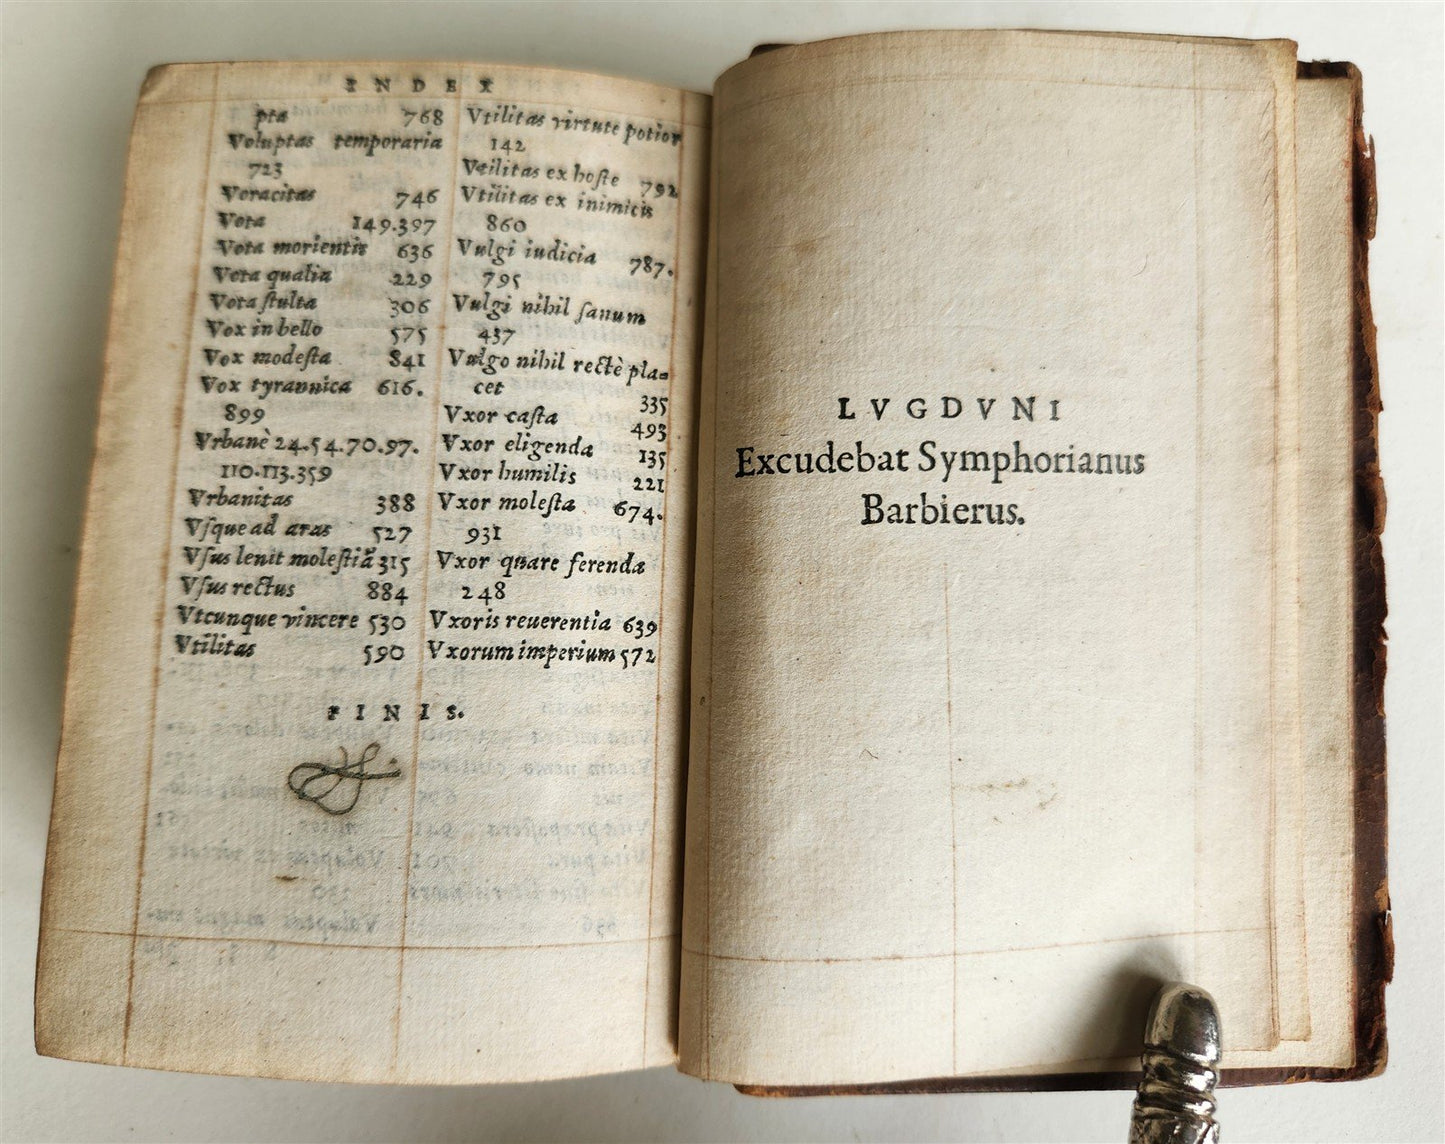 INDEX
pta 768
Voluptas temporaria
723
Voracitas 746
Vota 149.397
Vota morientis 636
Vota qualia 229
Vota ſtulta 306
Vox in bello 575
Vox modeſta 841
Vox tyrannica 616.
899
Vrbanè 24.54.70.97.
110.113.359
Vrbanitas 388
Vſque ad aras 527
Vſus lenit moleſtiã 315
Vſus rectus 884
Vtcunque vincere 530
Vtilitas 590
Vtilitas virtute potior
142
Vtilitas ex hoſte 792
Vtilitas ex inimicis
860
Vulgi iudicia 787.
795
Vulgi nihil ſanum
437
Vulgo nihil rectè pla-
cet 335
Vxor caſta 493
Vxor eligenda 135
Vxor humilis 221
Vxor moleſta 674.
931
Vxor quare ferenda
248
Vxoris reuerentia 639
Vxorum imperium 572
FINIS.
LVGDVNI
Excudebat Symphorianus
Barbierus.